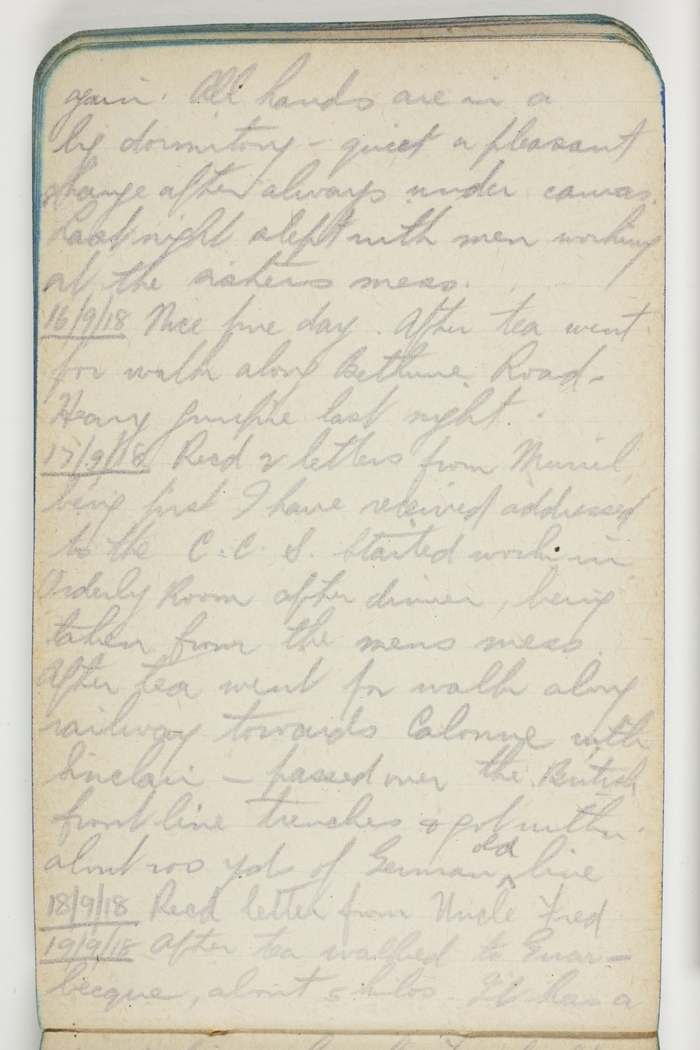 again. All hands are in a
big dormitory - quiet a pleasant
change after always under canvas.
Last night slept with men working
at the sisters mess.
16/9/18 Nice fine day. After tea went
for walk along Bethune Road -
Heavy gunfire last night.
17/9/18 Recd 2 letters from Muriel,
being first I have received addressed
to the C.C.S. Started work in
Orderly Room after dinner, being
taken from the mens mess.
After tea went for walk along
railway towards Calonne with
Sinclair - passed over the British
front line trenches & got within
about 200 yds of German old line
18/9/18 Recd letter from Uncle Fred
19/9/18 After tea walked to Guar-
becque, about 5 kilos. It has a